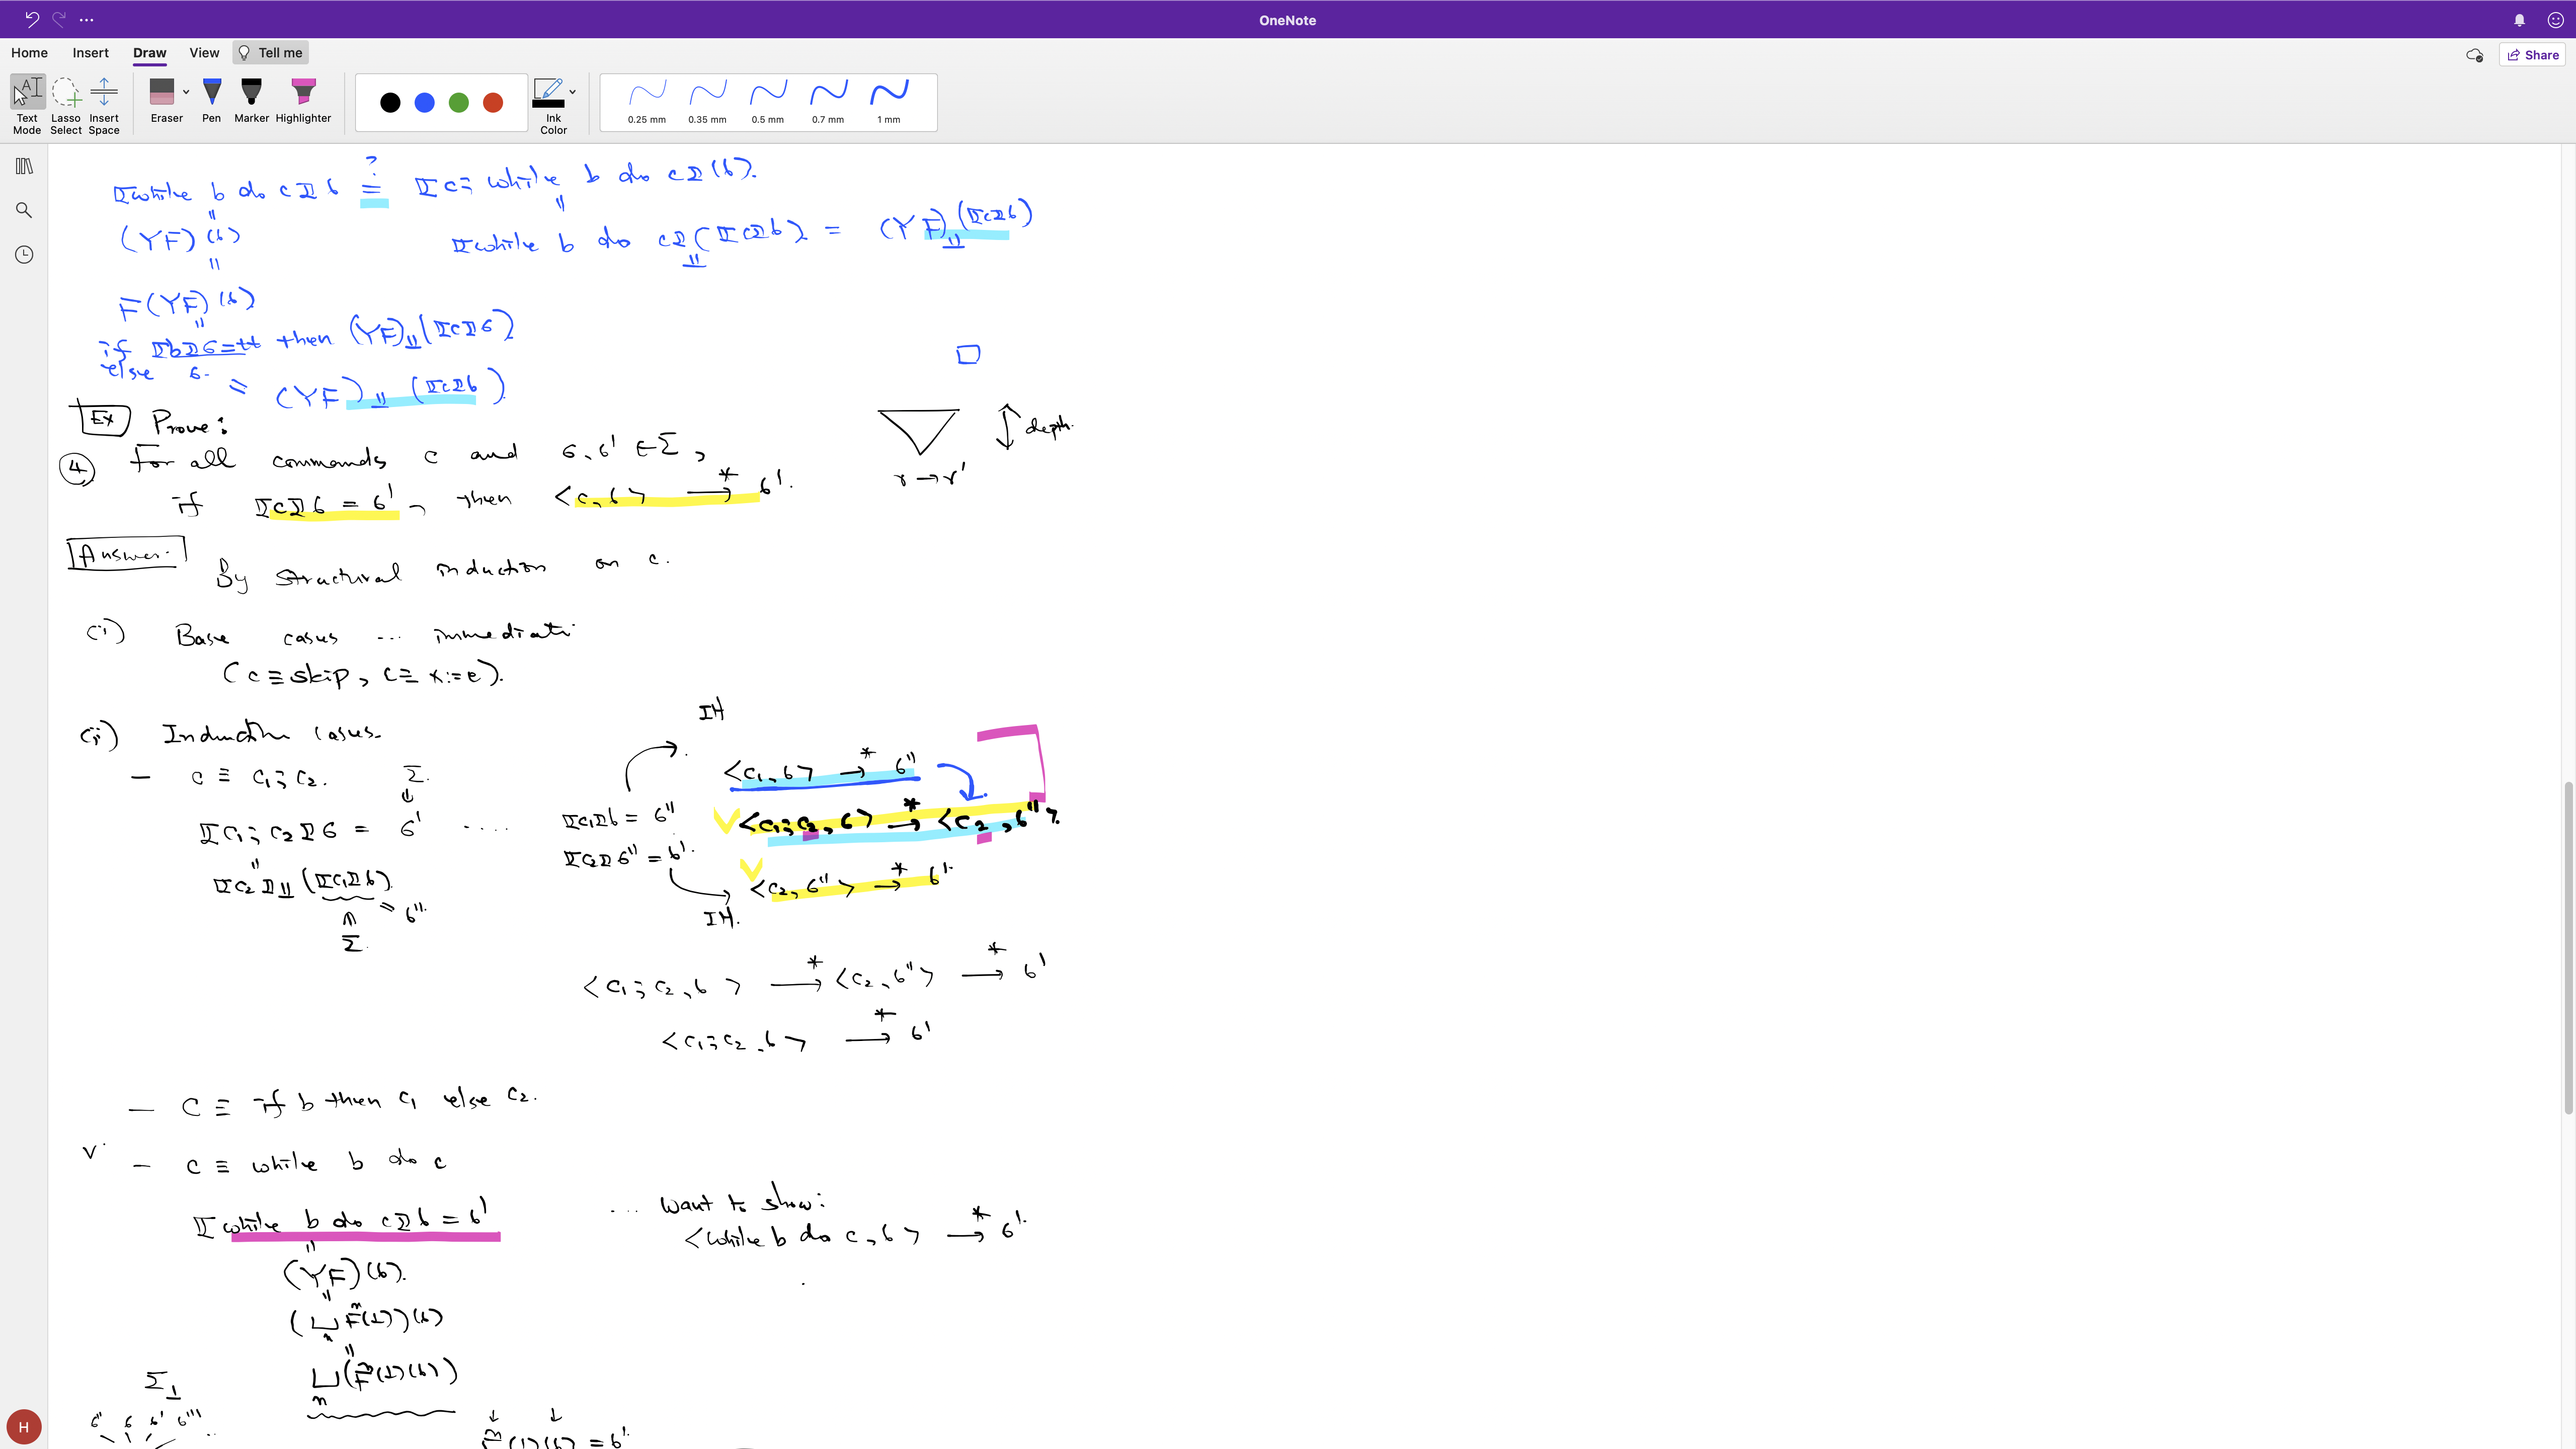 OneNote
Home Insert Draw View Tell me
Share
Text Mode
Lasso Select
Insert Space
Eraser
Pen
Marker
Highlighter
Ink Color
0.25 mm
0.35 mm
0.5 mm
0.7 mm
1 mm
⟦while b do c⟧σ =? ⟦c; while b do c⟧(σ).
(YF)(σ)
⟦while b do c⟧(⟦c⟧σ) = (YF)⊥⊥(⟦c⟧σ)
F(YF)(σ)
if ⟦b⟧σ=tt then (YF)⊥⊥(⟦c⟧σ)
else σ.
= (YF)⊥⊥(⟦c⟧σ).
Ex Prove:
④ For all commands c and σ, σ' ∈ Σ,
if ⟦c⟧σ = σ', then <c, σ> →* σ'.
depth.
r → r'
Answer.
By structural induction on c.
(i) Base cases ... immediate
(c ≡ skip, c ≡ x:=e).
(ii) Inductive cases.
IH
— c ≡ c₁; c₂. Σ.
<c₁, σ> →* σ''
⟦c₁; c₂⟧σ = σ' ....
⟦c₁⟧σ = σ''
<c₁; c₂, σ> →* <c₂, σ''>.
⟦c₂⟧σ'' = σ'.
⟦c₂⟧⊥⊥(⟦c₁⟧σ) = σ''.
<c₂, σ''> →* σ'.
IH.
Σ.
<c₁; c₂, σ> →* <c₂, σ''> →* σ'
<c₁; c₂, σ> →* σ'
— C ≡ if b then c₁ else c₂.
— c ≡ while b do c
⟦while b do c⟧σ = σ'
... want to show:
<while b do c, σ> →* σ'.
(YF)(σ).
(⊔ₙ Fⁿ(⊥))(σ)
⊔ₙ(Fⁿ(⊥)(σ))
Σ⊥
σ'' σ σ' σ'''
(⊥)(σ) = σ'.
H